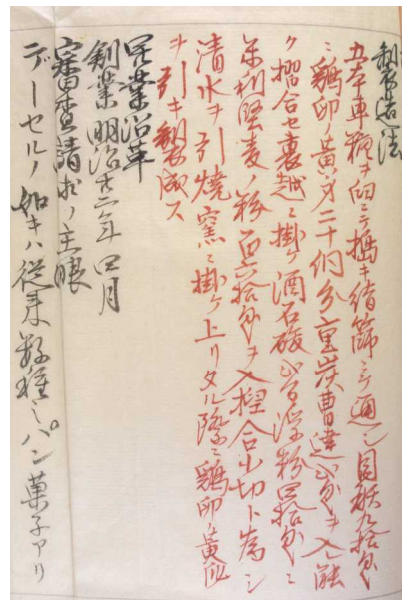 製造法
五本車糖ヲ臼ニテ搗キ絹篩ニテ通シ目方九拾匁
ニ鶏卵ノ黄身二十個分重炭曹達 匁ヲ入レ能
ク摺合セ裏越ニ掛ケ酒石酸 匁浮粉四拾匁ニ
米利堅麦ノ粉百六拾匁ヲ入揑合小切ト為シ
清水ヲ引焼窯ニ掛ケ上リタル際ニ鶏卵ノ黄
ヲ引キ製成ス
営業沿革
創業明治廿二年四月
審査請求ノ主眼
デーセルノ如キハ従来数種ノパン菓子アリ